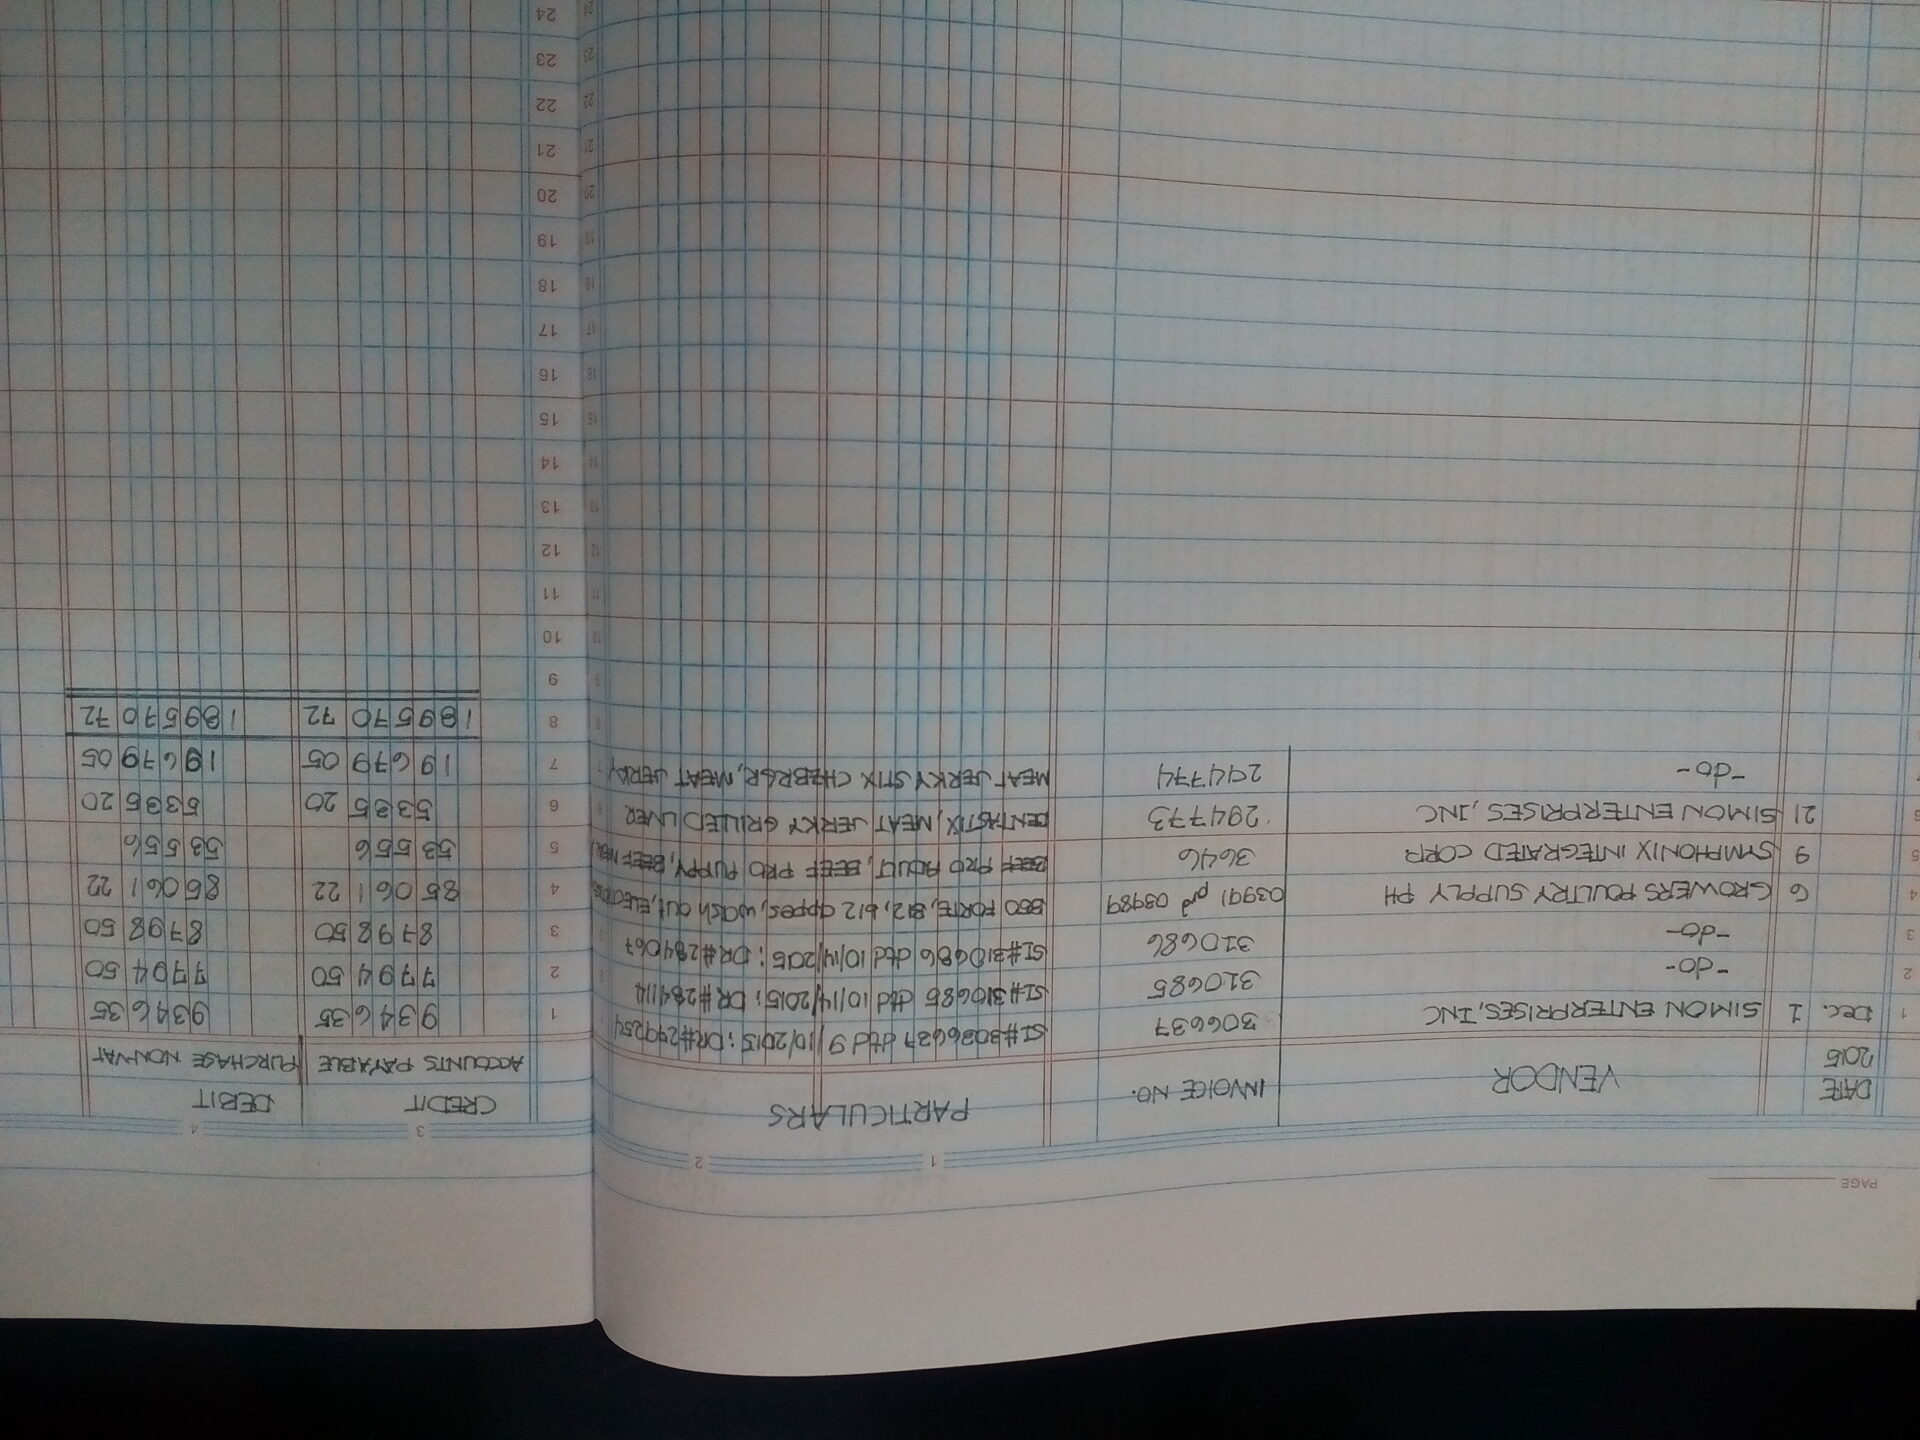 PAGE
1 2 3 4
DATE VENDOR INVOICE NO. PARTICULARS CREDIT DEBIT
2015 ACCOUNTS PAYABLE PURCHASE NON-VAT
1 Dec. 1 SIMON ENTERPRISES, INC 306637 SI#306637 dtd 9/10/2015; DR#279254 1 9346 35 9346 35
2 -do- 310685 SI#310685 dtd 10/14/2015; DR#284114 2 7794 50 7794 50
3 -do- 310686 SI#310686 dtd 10/14/2015; DR#284067 3 8798 50 8798 50
4 6 GROWERS POULTRY SUPPLY PH 03991 and 03989 FORTE, B12, b12 appee, wash out, 4 85061 22 85061 22
5 9 SYMPHONIX INTEGRATED CORP 3646 BEEF PRO ADULT, BEEF PRO PUPPY, BEEF 5 53556 53556
6 21 SIMON ENTERPRISES, INC 294773 DENTASTIX, MEAT JERKY GRILLED LIVER 6 5335 20 5335 20
-do- 294774 MEAT JERKY STIX CHZBRGR, MEAT JERKY 7 19679 05 19679 05
8 189570 72 189570 72
9
10
11
12
13
14
15
16
17
18
19
20
21
22
23
24